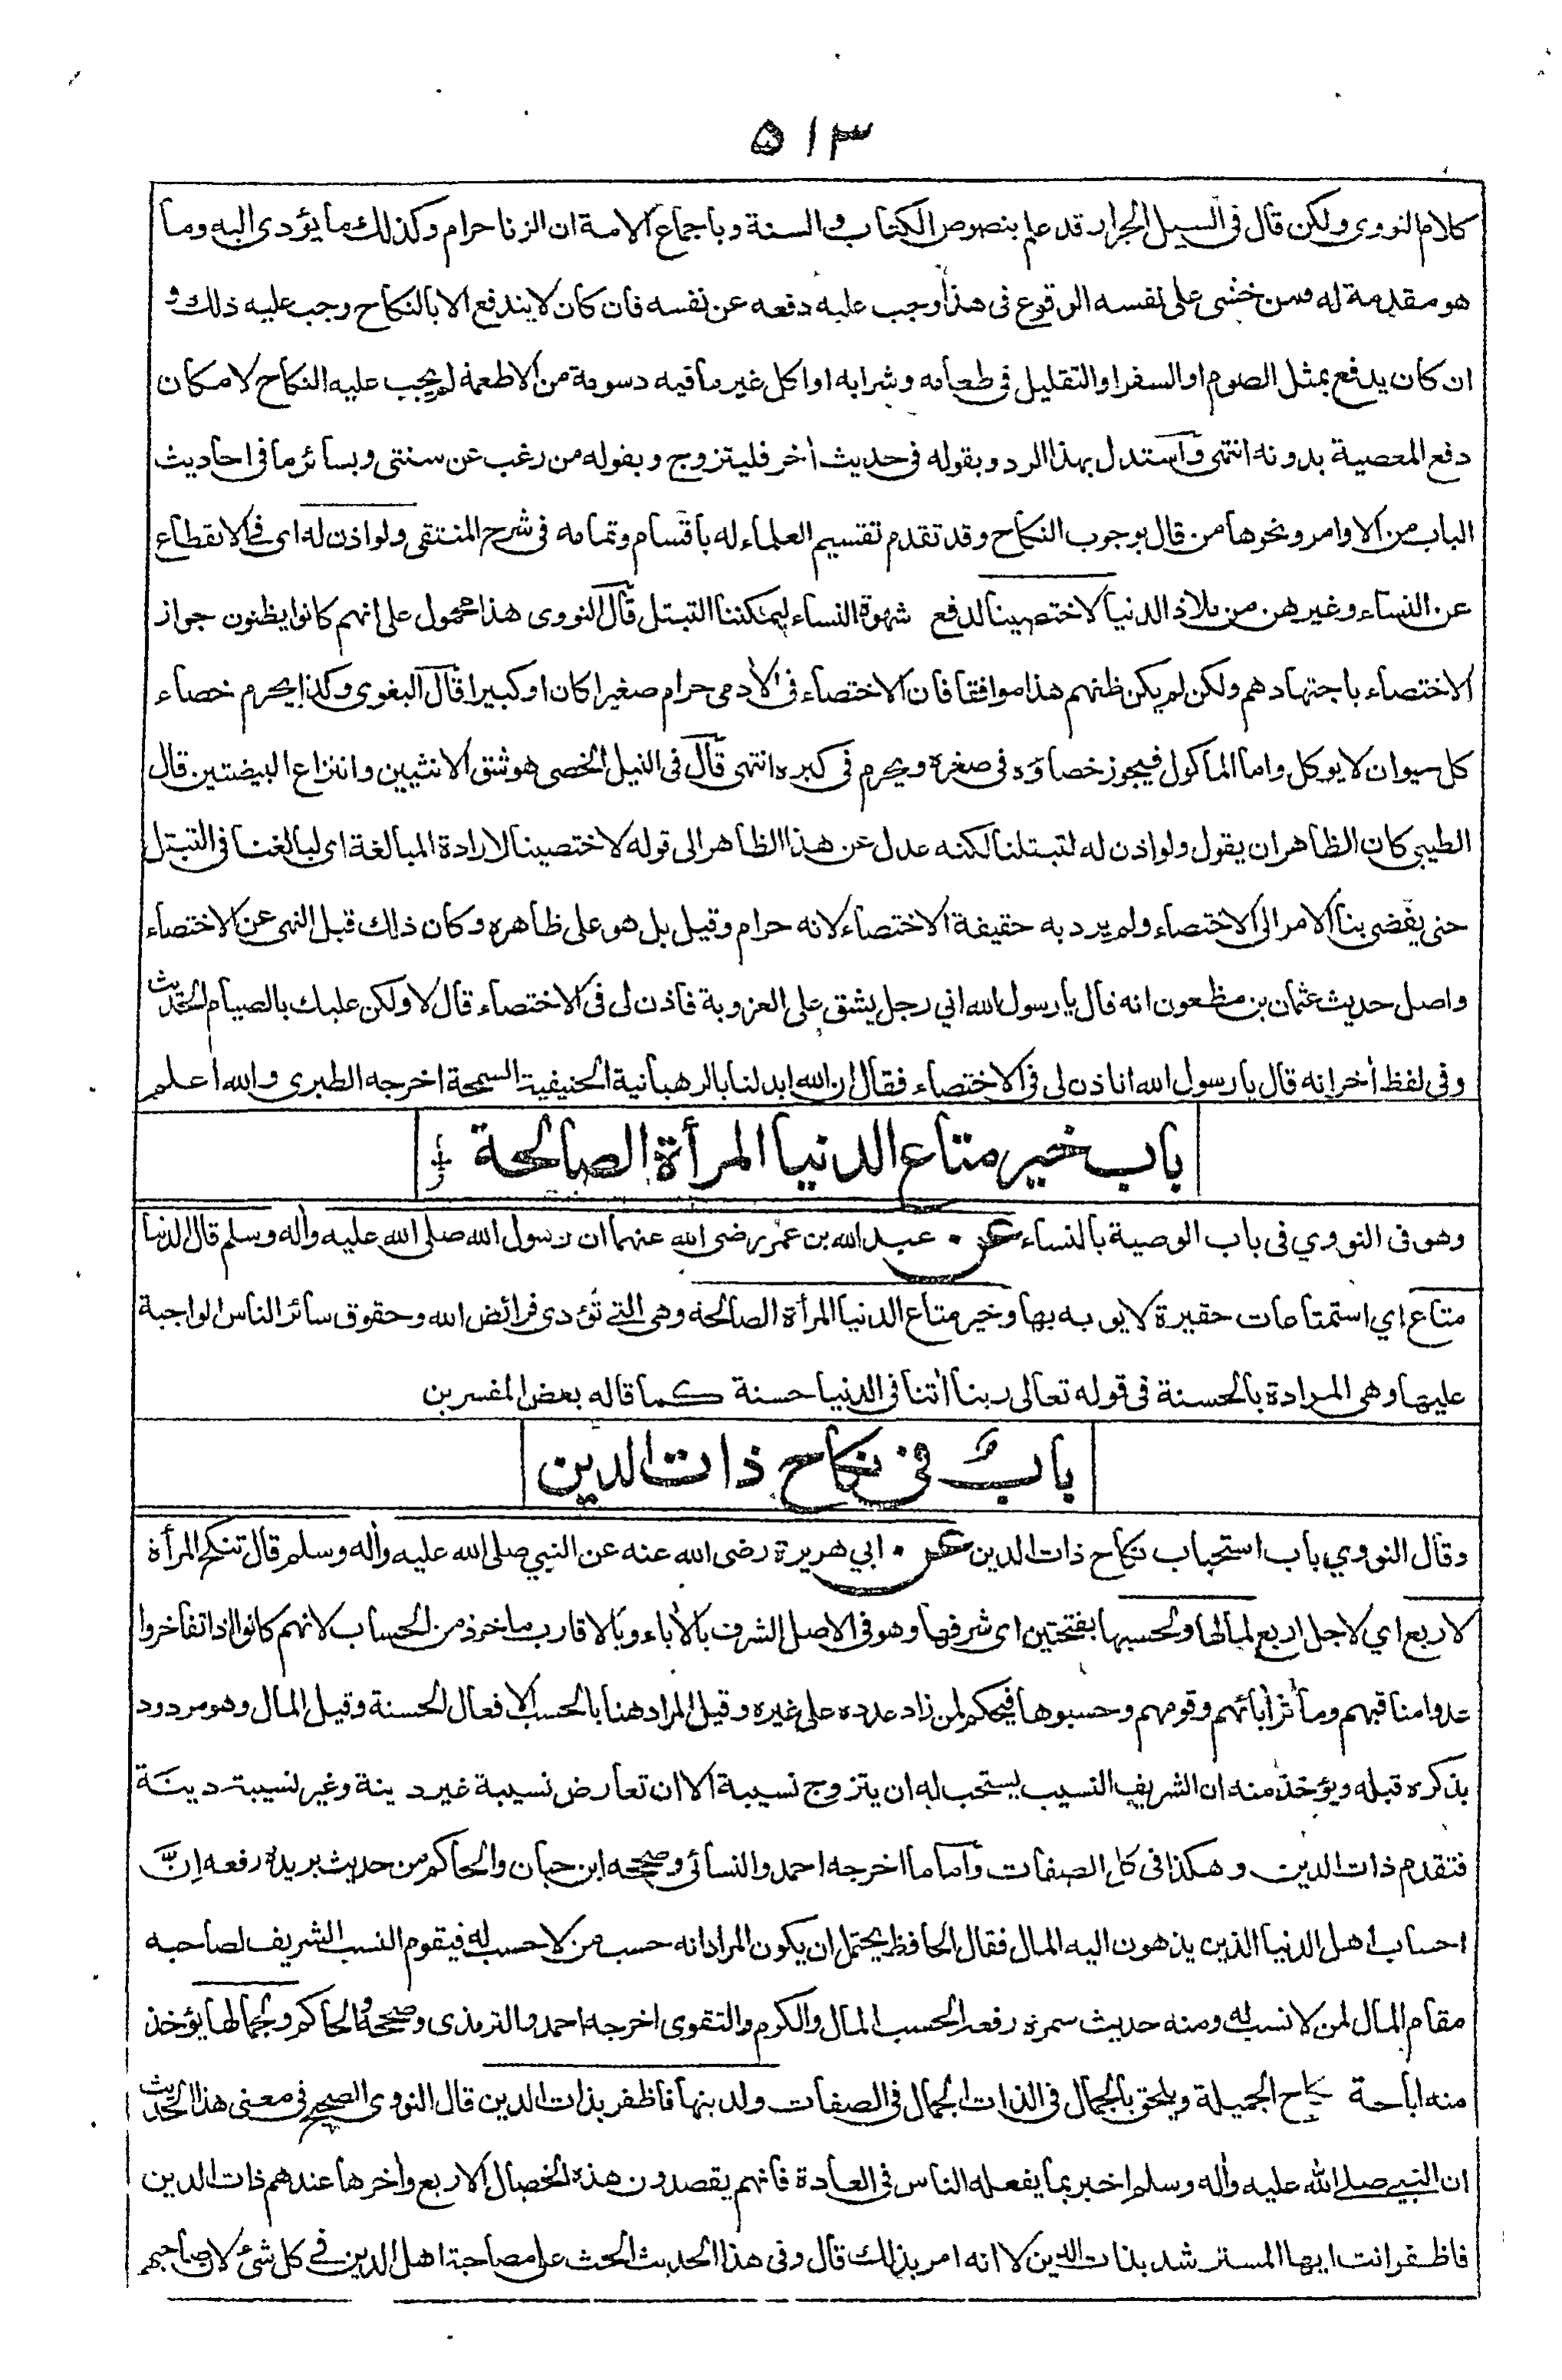 ٥١٣
كلام النووى ولكن قال فى السيل الجرار قد علم بنصوص الكتاب والسنة وباجماع الامة ان الزنا حرام وكذلك ما يؤدى اليه وما
هو مقدمة له ومن خشى على نفسه الوقوع فى هذا وجب عليه دفعه عن نفسه فان كان لا يندفع الا بالنكاح وجب عليه ذلك و
ان كان يدفع بمثل الصوم او السفر او التقليل فى طعامه وشرابه او اكل غير ما فيه دسومة من الاطعمة لم يجب عليه النكاح لامكان
دفع المعصية بدونه انتهى واستدل بهذا الرد وبقوله فى حديث أخر فليتزوج وبقوله من رغب عن سنتى وبسائر ما فى احاديث
الباب من الاوامر ونحوها من قال بوجوب النكاح وقد تقدم تقسيم العلماء له باقسام وتمامه فى شرح المنتقى ولو اذن له اى فى الانقطاع
عن النساء وغيرهن من ملاذ الدنيا لاختصينا لدفع شهوة النساء ليمكننا التبتل قال النووى هذا محمول على انهم كانوا يظنون جواز
الاختصاء باجتهادهم ولكن لم يكن ظنهم هذا موافقا فان الاختصاء فى الأدمى حرام صغيرا كان او كبيرا قال البغوى وكذا يحرم خصاء
كل حيوان لا يوكل واما الماكول فيجوز خصاؤه فى صغره ويحرم فى كبره انتهى قال فى النيل الخصى هو شق الانثيين وانتزاع البيضتين قال
الطيبى كان الظاهر ان يقول ولو اذن له لتبتلنا لكنه عدل عن هذا الظاهر الى قوله لاختصينا لارادة المبالغة اى لبالغنا فى التبتل
حتى يفضى بنا الامر الى الاختصاء ولم يرد به حقيقة الاختصاء لانه حرام وقيل بل هو على ظاهره وكان ذلك قبل النهى عن الاختصاء
واصل حديث عثمان بن مظعون انه قال يا رسول الله اني رجل يشق على العزوبة فاذن لى فى الاختصاء قال لا ولكن عليك بالصيام الحديث
وفى لفظ أخر انه قال يا رسول الله اتاذن لى فى الاختصاء فقال ان الله ابدلنا بالرهبانية الحنيفية السمحة اخرجه الطبرى والله اعلم
باب خير متاع الدنيا المرأة الصالحة
وهو فى النووي فى باب الوصية بالنساء عن عبد الله بن عمر رضى الله عنهما ان رسول الله صلى الله عليه وأله وسلم قال الدنيا
متاع اي استمتاعات حقيرة لا يوبه بها وخير متاع الدنيا المرأة الصالحة وهى التى تؤدى فرائض الله وحقوق سائر الناس الواجبة
عليها وهى المرادة بالحسنة فى قوله تعالى ربنا اتنا فى الدنيا حسنة كما قاله بعض المفسرين
باب فى نكاح ذات الدين
وقال النووي باب استحباب نكاح ذات الدين عن ابي هريرة رضى الله عنه عن النبي صلى الله عليه وأله وسلم قال تنكح المرأة
لاربع اي لاجل اربع لمالها ولحسبها بفتحتين اى شرفها وهو فى الاصل الشرف بالأباء وبالاقارب ماخوذ من الحساب لانهم كانوا اذا تفاخروا
عدوا مناقبهم ومأثر أبائهم وقومهم وحسبوها فيحكم لمن زاد عدده على غيره وقيل المراد هنا بالحسب الافعال الحسنة وقيل المال وهو مردود
بذكره قبله ويؤخذ منه ان الشريف النسيب يستحب له ان يتزوج نسيبة الا ان تعارض نسيبة غير دينة وغير نسيبة دينة
فتقدم ذات الدين وهكذا فى كل الصفات واما ما اخرجه احمد والنسائى وصححه ابن حبان والحاكم من حديث بريدة رفعه ان
احساب اهل الدنيا الذين يذهبون اليه المال فقال الحافظ يحتمل ان يكون المراد انه حسب من لا حسب له فيقوم النسب الشريف لصاحبه
مقام المال لمن لا نسب له ومنه حديث سمرة رفعه الحسب المال والكرم والتقوى اخرجه احمد والترمذى وصححه والحاكم وجمالها يؤخذ
منه اباحة نكاح الجميلة ويلحق بالجمال فى الذات الجمال فى الصفات ولدينها فاظفر بذات الدين قال النووى الصحيح فى معنى هذا الحديث
ان النبي صلى الله عليه وأله وسلم اخبر بما يفعله الناس فى العادة فانهم يقصدون هذه الخصال الاربع وأخرها عندهم ذات الدين
فاظفر انت ايها المسترشد بذات الدين لا انه امر بذلك قال وفى هذا الحديث الحث على مصاحبة اهل الدين فى كل شئ لان صاحبهم